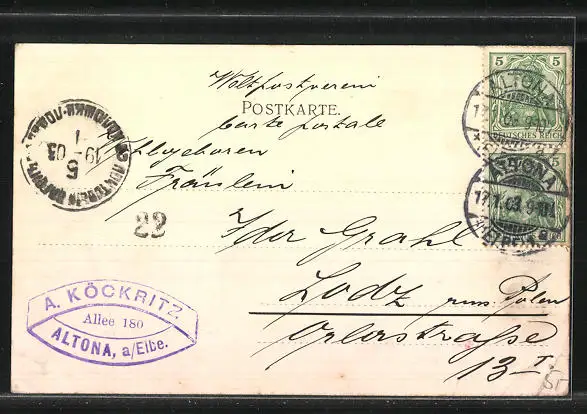 Weltpostverein
POSTKARTE.
Carte postale
Wohlgeboren
Fräulein
Ida Grahl
Lodz russ Polen
13 I.
22
A. KÖCKRITZ
Allee 180
ALTONA, a/Elbe.
19 1 03
5
5
DEUTSCHES REICH
ALTONA
5
ALTONA
17.1.03.